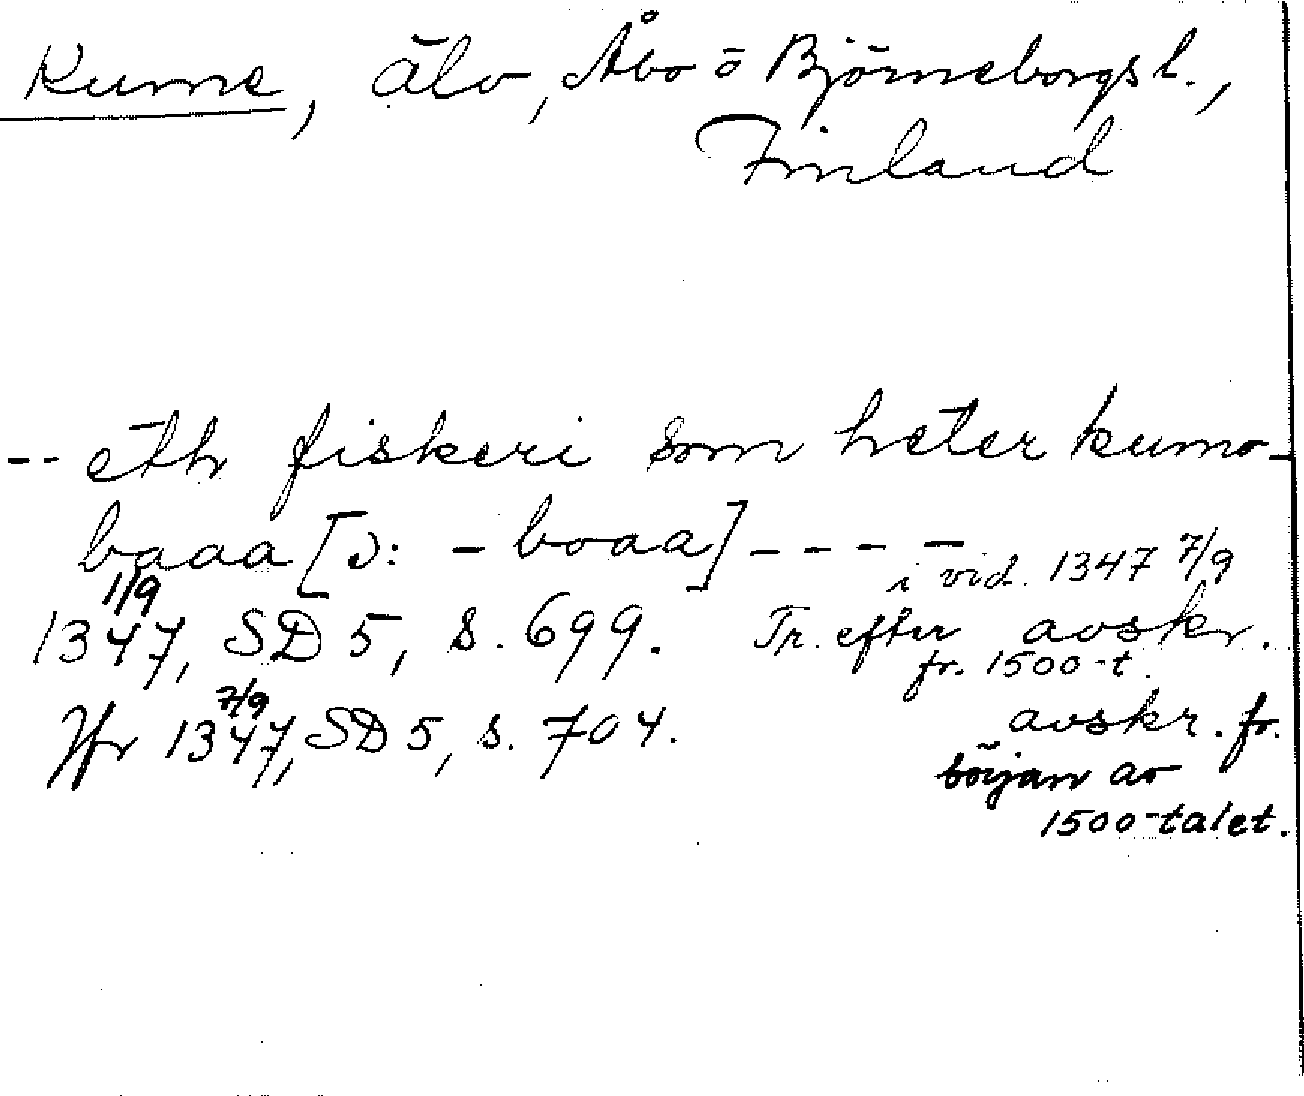 Kumo, älv, Åbo o Björneborgs l.,
Finland
-- eth fiskeri som heter kumo-
baaa [ɔ: - boaa] - - - -
i vid. 1347 7/9
1/9
1347, SD 5, s. 699. Tr. efter avskr.
fr. 1500-t.
7/9
Jfr 1347, SD 5, s. 704. avskr. fr.
början av
1500-talet.